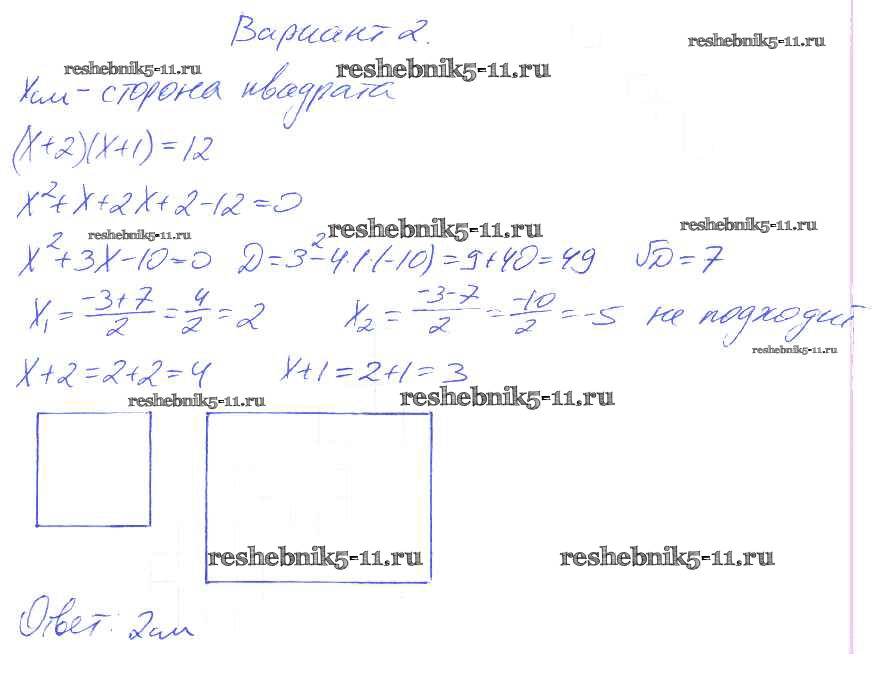 Вариант 2.
reshebnik5-11.ru
reshebnik5-11.ru
reshebnik5-11.ru
Xсм - сторона квадрата
(X+2)(X+1)=12
X²+X+2X+2-12=0
reshebnik5-11.ru
reshebnik5-11.ru
reshebnik5-11.ru
X²+3X-10=0 D=3²-4·1·(-10)=9+40=49 √D=7
X₁=(-3+7)/2=4/2=2 X₂=(-3-7)/2=-10/2=-5 не подходит
reshebnik5-11.ru
X+2=2+2=4 X+1=2+1=3
reshebnik5-11.ru
reshebnik5-11.ru
reshebnik5-11.ru
reshebnik5-11.ru
Ответ: 2см